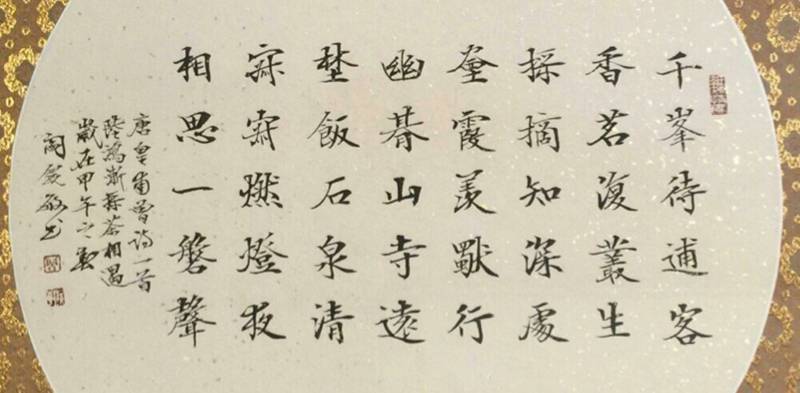 千峯待逋客
香茗復叢生
採摘知深處
霞羨獨行
幽朞山寺遠
埜飯石泉清
寂寂燃燈夜
相思一磬聲
唐皇甫曾詩一首
陸鴻漸採茶相遇
歲在甲午之夏
敏書